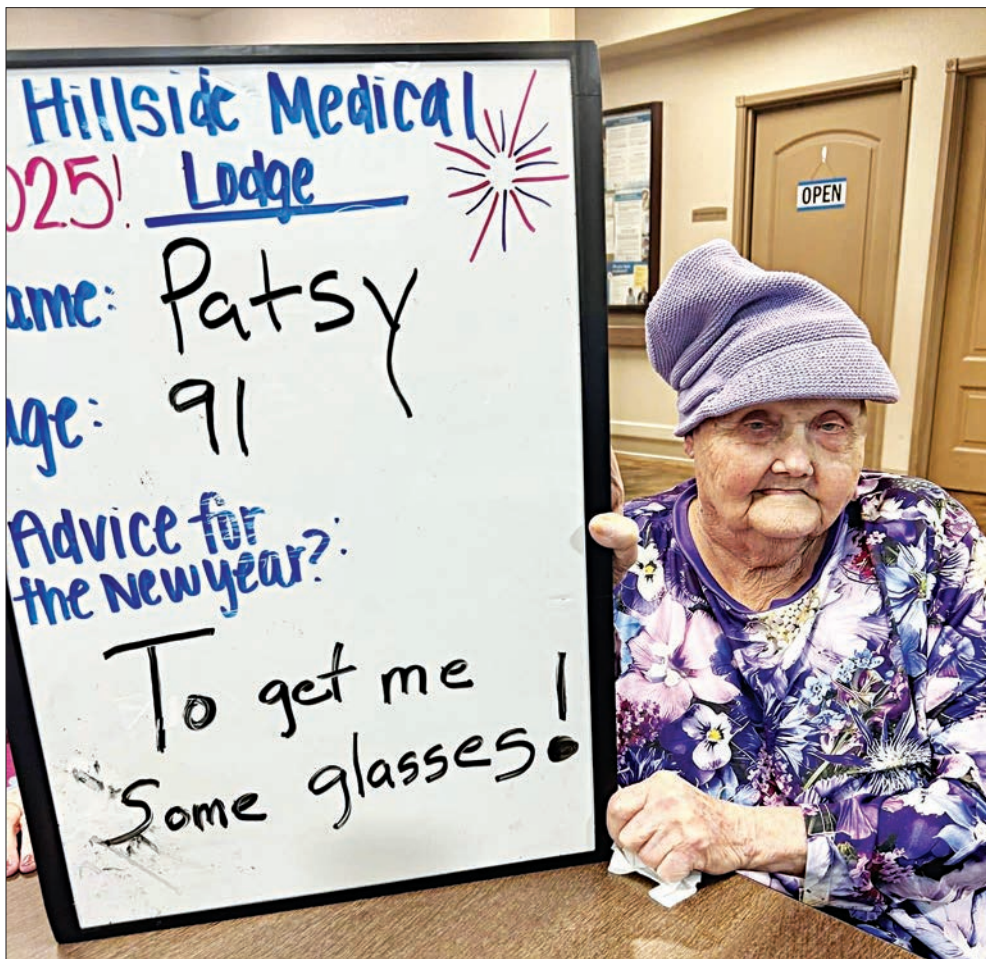 Hillside Medical
025! Lodge
ame: Patsy
Age: 91
Advice for
the New year?:
To get me
Some glasses!
OPEN